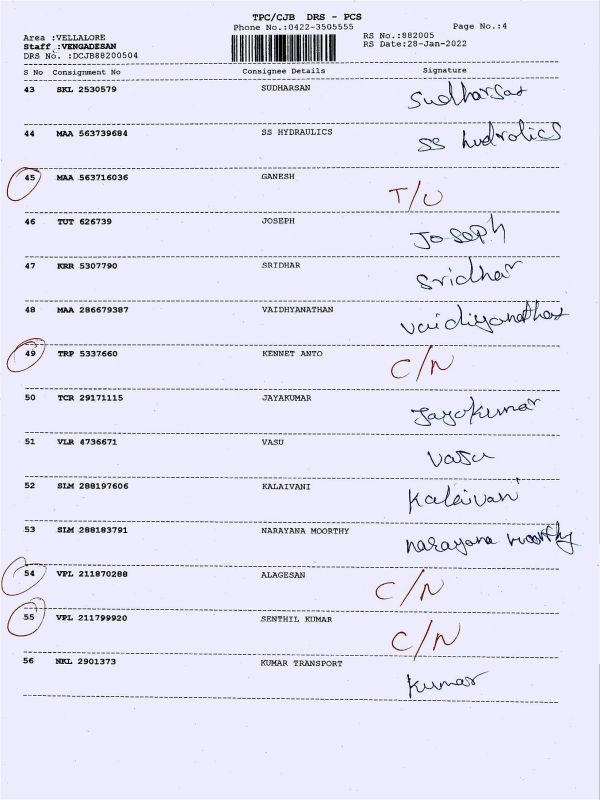 TPC/CJB DRS - PCS
Phone No.:0422-3505555 Page No.:4
Area :VELLALORE RS No.:882005
Staff :VENGADESAN RS Date:28-Jan-2022
DRS No. :DCJB88200504
S No Consignment No Consignee Details Signature
43 SKL 2530579 SUDHARSAN Sudharsan
44 MAA 563739684 SS HYDRAULICS SS hudrolics
45 MAA 563716036 GANESH T/U
46 TUT 626739 JOSEPH Joseph
47 KRR 5307790 SRIDHAR Sridhar
48 MAA 286679387 VAIDHYANATHAN Vaidiyanathan
49 TRP 5337660 KENNET ANTO C/N
50 TCR 29171115 JAYAKUMAR Jayakumar
51 VLR 4736671 VASU Vasu
52 SLM 288197606 KALAIVANI Kalaivani
53 SLM 288183791 NARAYANA MOORTHY narayana moorthy
54 VPL 211870288 ALAGESAN C/N
55 VPL 211799920 SENTHIL KUMAR C/N
56 NKL 2901373 KUMAR TRANSPORT Kumar